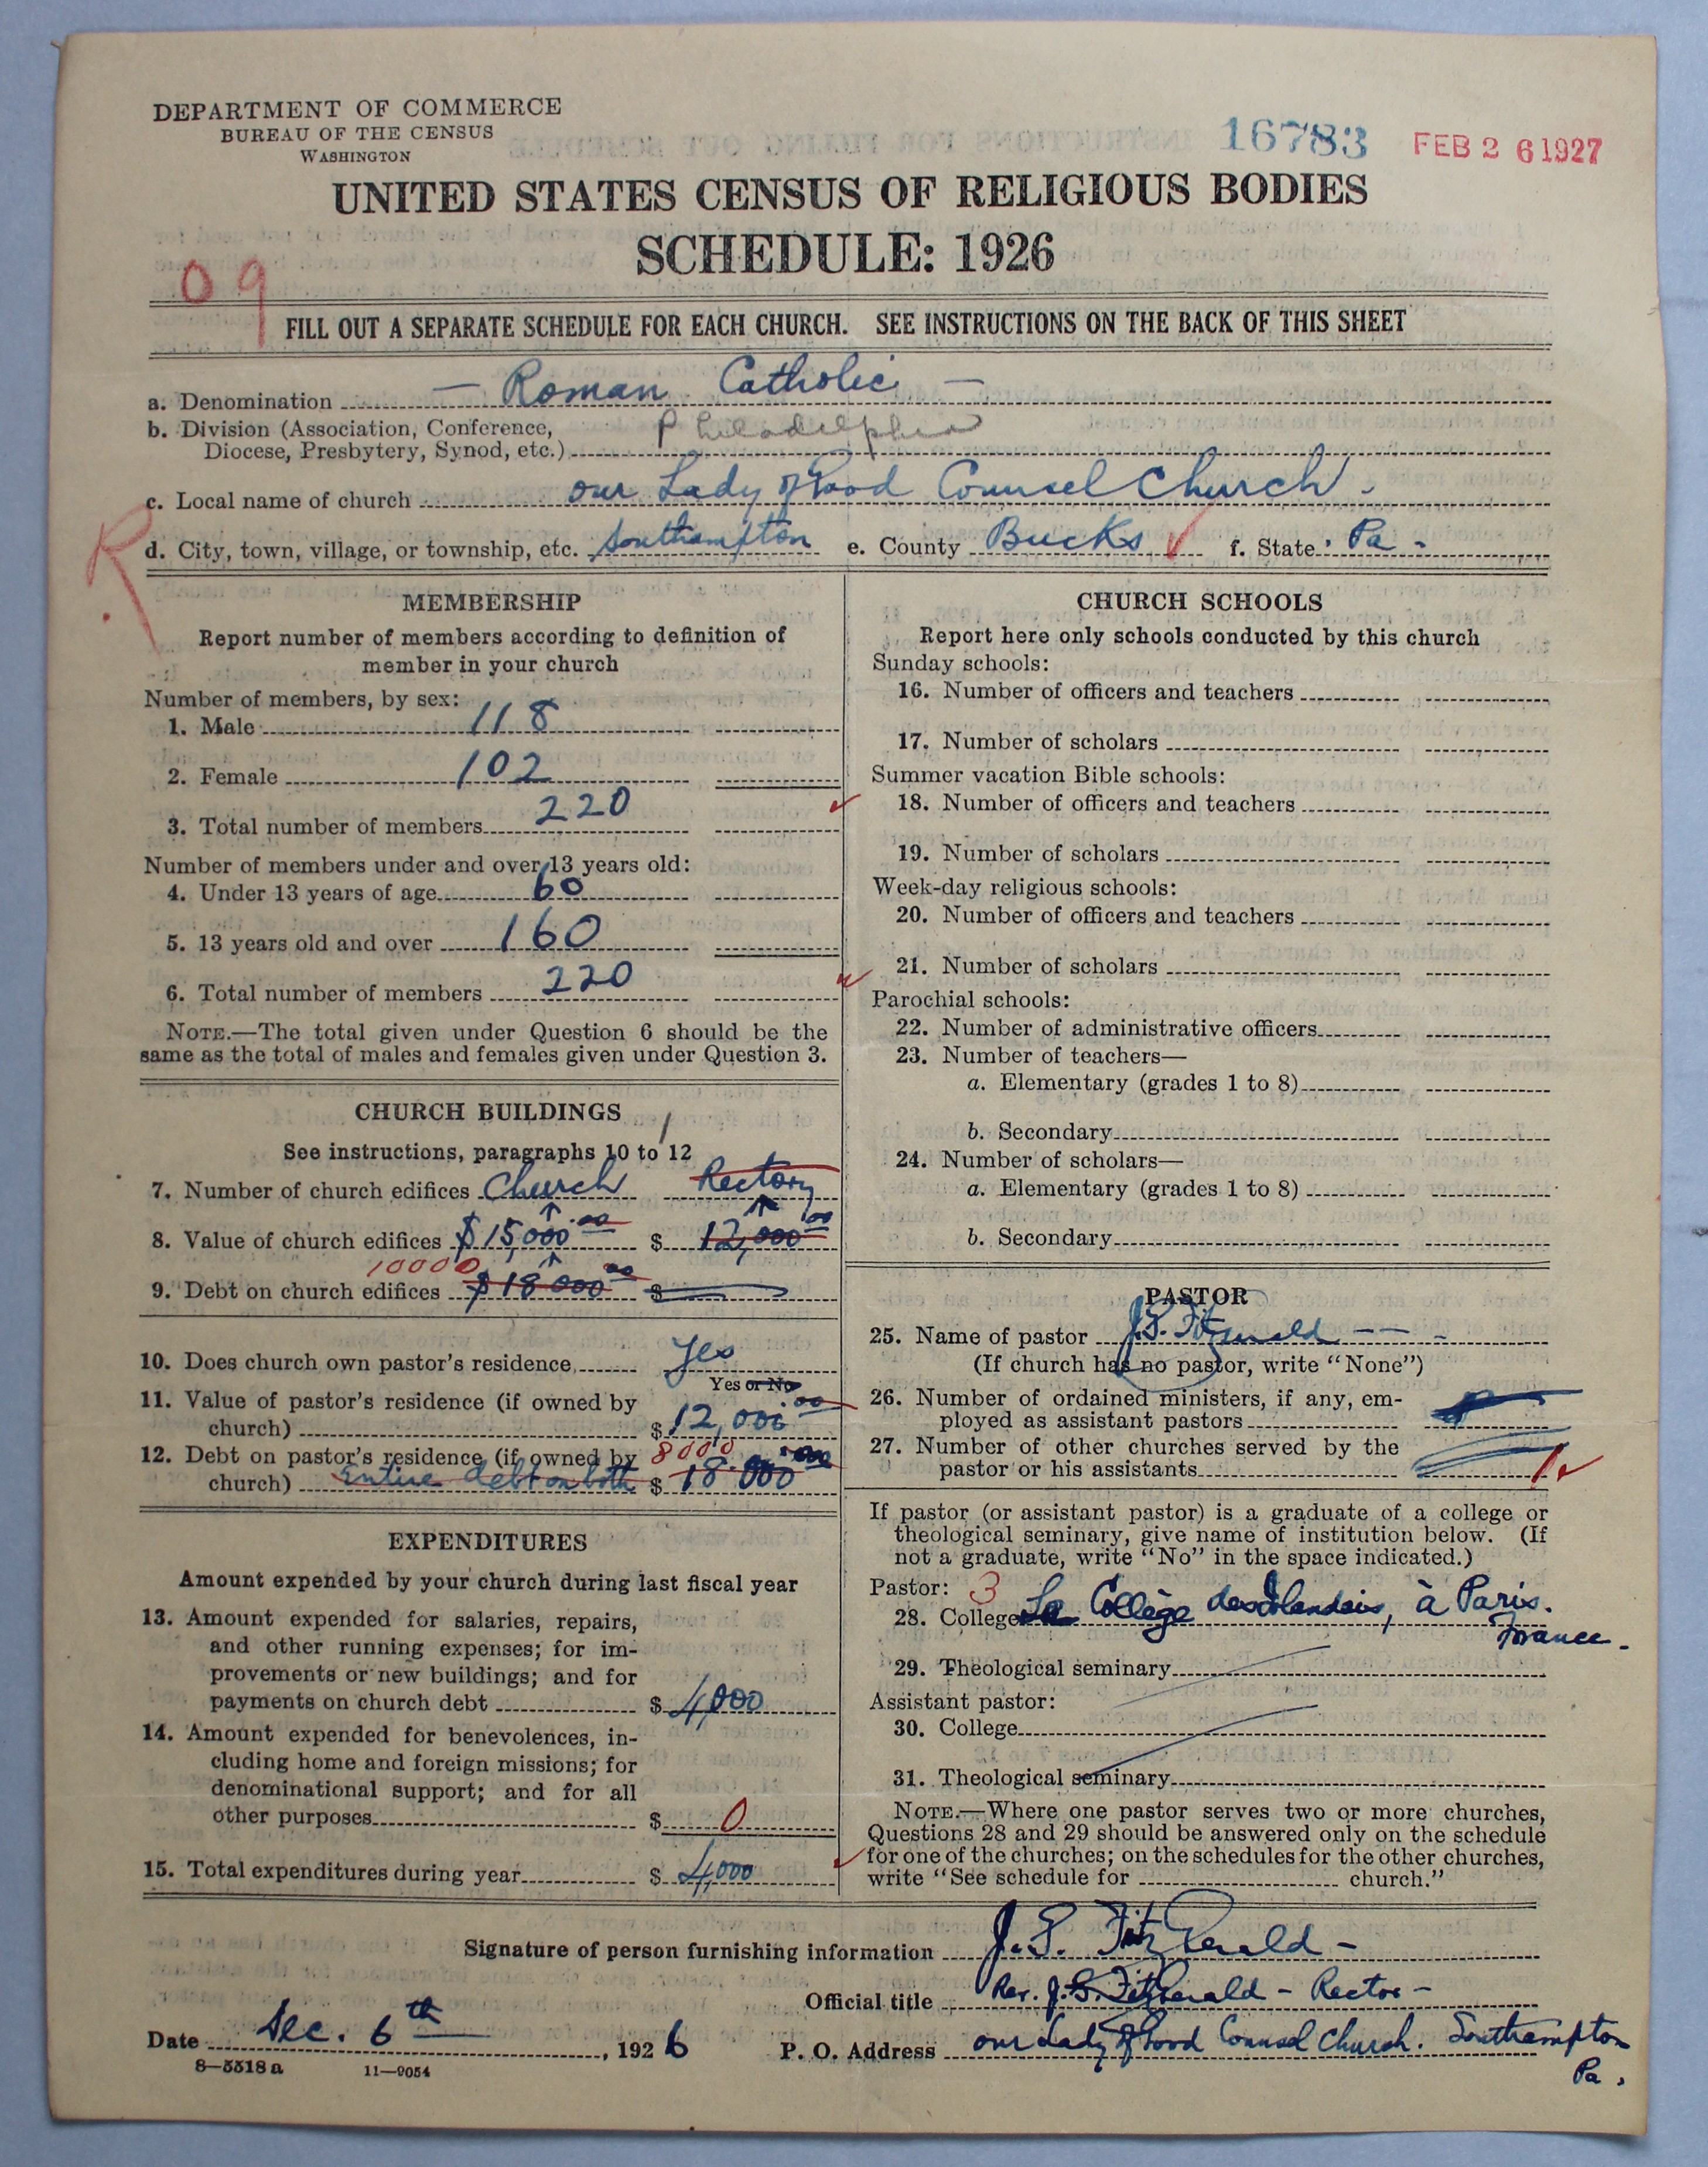 DEPARTMENT OF COMMERCE
BUREAU OF THE CENSUS
WASHINGTON
16783 FEB 26 1927
UNITED STATES CENSUS OF RELIGIOUS BODIES
SCHEDULE: 1926
09
FILL OUT A SEPARATE SCHEDULE FOR EACH CHURCH. SEE INSTRUCTIONS ON THE BACK OF THIS SHEET
a. Denomination — Roman Catholic —
b. Division (Association, Conference, Philadelphia
Diocese, Presbytery, Synod, etc.)
c. Local name of church our Lady of Good Counsel Church.
R
d. City, town, village, or township, etc. Southampton e. County Bucks ✓ f. State Pa -
MEMBERSHIP
Report number of members according to definition of
member in your church
Number of members, by sex:
1. Male 118
2. Female 102
3. Total number of members 220 ✓
Number of members under and over 13 years old:
4. Under 13 years of age 60
5. 13 years old and over 160
6. Total number of members 220 ✓
NOTE.—The total given under Question 6 should be the
same as the total of males and females given under Question 3.
CHURCH BUILDINGS
See instructions, paragraphs 10 to 12
1
7. Number of church edifices Church Rectory
8. Value of church edifices $15,000.00 $ 12,000.00
10000
9. Debt on church edifices $18000.00 $
10. Does church own pastor's residence Yes
Yes or No
11. Value of pastor's residence (if owned by
church) $12,000.00
12. Debt on pastor's residence (if owned by 8000
church) Entire debt on both $ 18000
EXPENDITURES
Amount expended by your church during last fiscal year
13. Amount expended for salaries, repairs,
and other running expenses; for im-
provements or new buildings; and for
payments on church debt $ 4,000
14. Amount expended for benevolences, in-
cluding home and foreign missions; for
denominational support; and for all
other purposes $ 0
15. Total expenditures during year $ 4,000 ✓
CHURCH SCHOOLS
Report here only schools conducted by this church
Sunday schools:
16. Number of officers and teachers
17. Number of scholars
Summer vacation Bible schools:
18. Number of officers and teachers
19. Number of scholars
Week-day religious schools:
20. Number of officers and teachers
21. Number of scholars
Parochial schools:
22. Number of administrative officers
23. Number of teachers—
a. Elementary (grades 1 to 8)
b. Secondary
24. Number of scholars—
a. Elementary (grades 1 to 8)
b. Secondary
PASTOR
25. Name of pastor J.S. Fitzgerald — — -
(If church has no pastor, write "None")
26. Number of ordained ministers, if any, em-
ployed as assistant pastors
27. Number of other churches served by the
pastor or his assistants 1 ✓
If pastor (or assistant pastor) is a graduate of a college or
theological seminary, give name of institution below. (If
not a graduate, write "No" in the space indicated.)
Pastor: 3
28. College Le Collège des Irlandais, à Paris.
France.
29. Theological seminary
Assistant pastor:
30. College
31. Theological seminary
NOTE.—Where one pastor serves two or more churches,
Questions 28 and 29 should be answered only on the schedule
for one of the churches; on the schedules for the other churches,
write "See schedule for church."
Signature of person furnishing information J.S. FitzGerald -
Official title Rev. J.S. FitzGerald - Rector -
Date Dec. 6th, 1926 P. O. Address our Lady of Good Counsel Church. Southampton
Pa.
8—5518a 11—9054